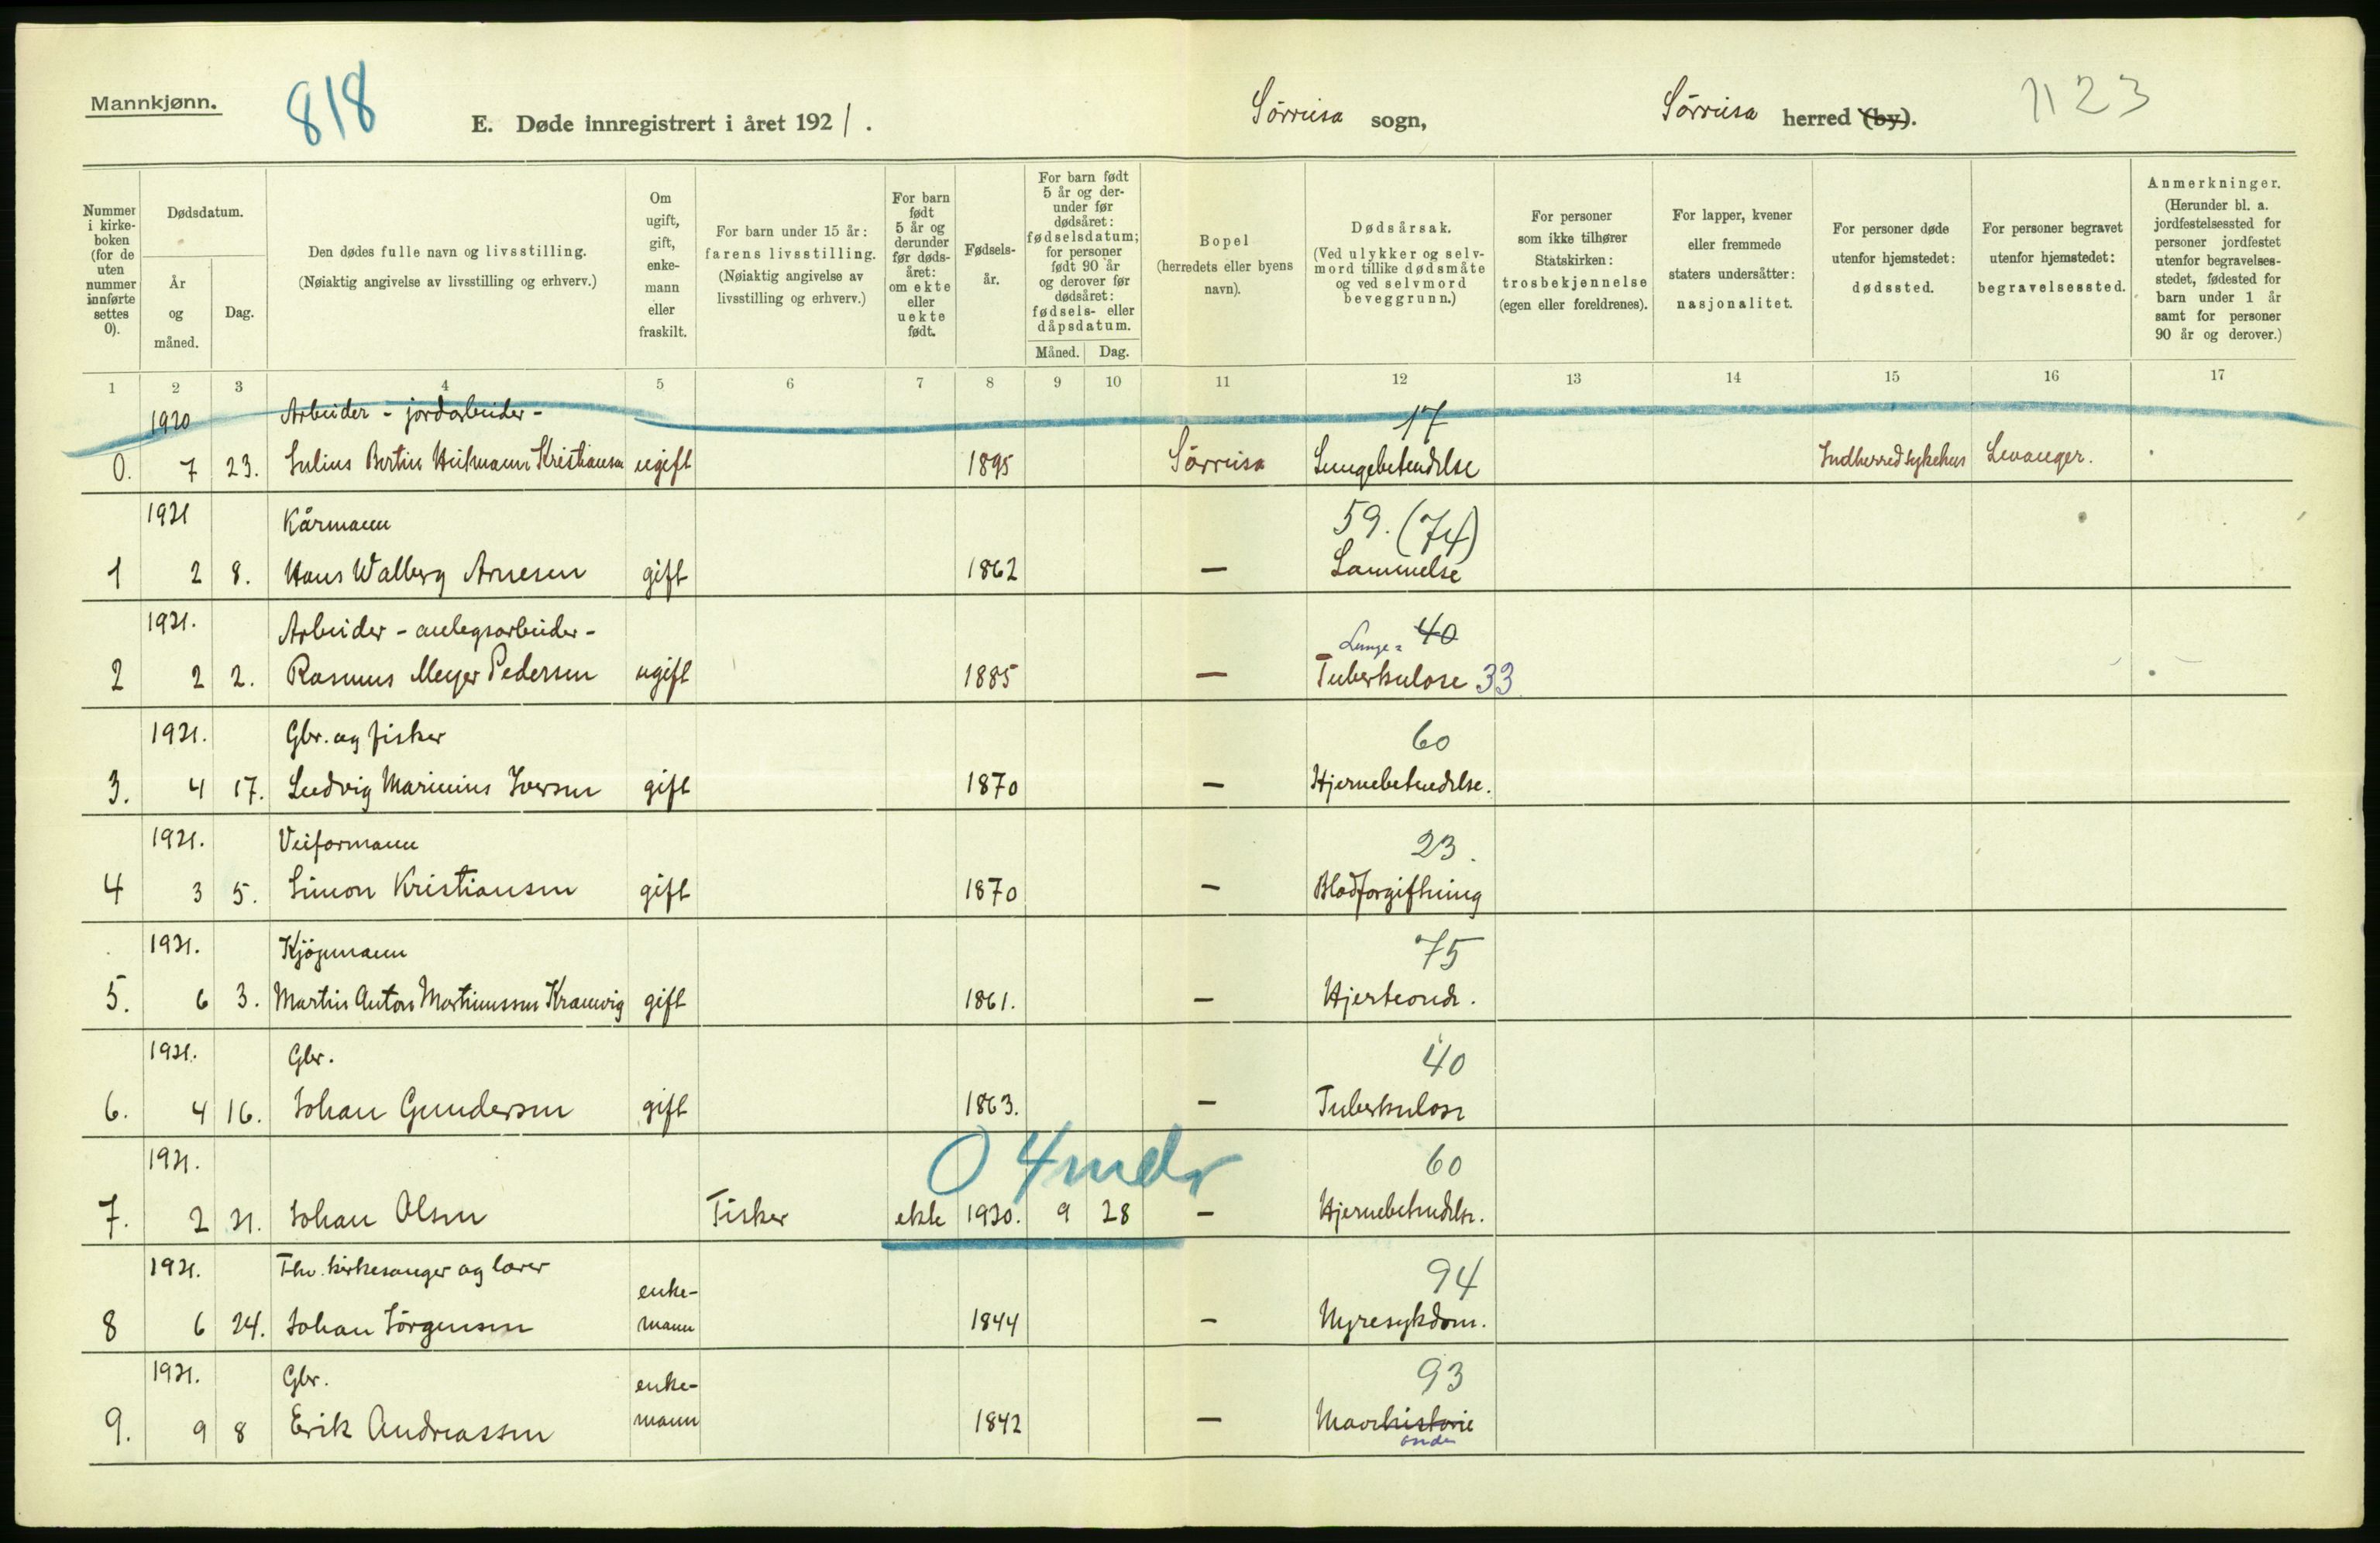 Mannkjønn.
818
E. Døde innregistrert i året 1921.
Sörreisa sogn,
Sörreisa herred (by).
1123
Nummer i kirkeboken (for de uten nummer innførte settes 0).
Dødsdatum.
År og måned.
Dag.
Den dødes fulle navn og livsstilling.
(Nøiaktig angivelse av livsstilling og erhverv.)
Om ugift, gift, enkemann eller fraskilt.
For barn under 15 år: farens livsstilling.
(Nøiaktig angivelse av livsstilling og erhverv.)
For barn født 5 år og derunder før dødsåret: om ekte eller uekte født.
Fødselsår.
For barn født 5 år og derunder før dødsåret: fødselsdatum; for personer født 90 år og derover før dødsåret: fødsels- eller dåpsdatum.
Måned. Dag.
Bopel (herredets eller byens navn).
Dødsårsak.
(Ved ulykker og selvmord tillike dødsmåte og ved selvmord beveggrunn.)
For personer som ikke tilhører Statskirken: trosbekjennelse (egen eller foreldrenes).
For lapper, kvener eller fremmede staters undersåtter: nasjonalitet.
For personer døde utenfor hjemstedet: dødssted.
For personer begravet utenfor hjemstedet: begravelsessted.
Anmerkninger.
(Herunder bl. a. jordfestelsessted for personer jordfestet utenfor begravelsesstedet, fødested for barn under 1 år samt for personer 90 år og derover.)
1 2 3 4 5 6 7 8 9 10 11 12 13 14 15 16 17
1920 Arbeider - jordarbeider - 17
0. 7 23. Julius Bertin Heitmann Kristiansen ugift 1895 Sörreisa Lungebetendelse Indherred sykehus Levanger.
1921 Kårmann 59. (74)
1 2 8. Hans Walberg Arnesen gift 1862 — Lammelse
1921. Arbeider - anlegsarbeider - Lunge= 40
2 2 2. Rasmus Meyer Pedersen ugift 1885 — Tuberkulose 33
1921. Gbr. og fisker 60
3. 4 17. Ludvig Marinius Iversen gift 1870 — Hjernebetendelse.
1921. Veiformann 23.
4 3 5. Simon Kristiansen gift 1870 — Blodforgiftning
1921. Kjöpmann 75
5. 6 3. Martin Anton Martinussen Kramvig gift 1861. — Hjerteonde.
1921. Gbr. 40
6. 4 16. Johan Gundersen gift 1863. — Tuberkulose
1921. 0 4 mdr 60
7. 2 21. Johan Olsen Fisker ekte 1920. 9 28 — Hjernebetendelse.
1921. Fhv. kirkesanger og lærer 94
8 6 24. Johan Jörgensen enke-mann 1844 — Nyresykdom.
1921. Gbr. 93
9. 9 8 Erik Andreassen enke-mann 1842 — Mavehistorie
onde